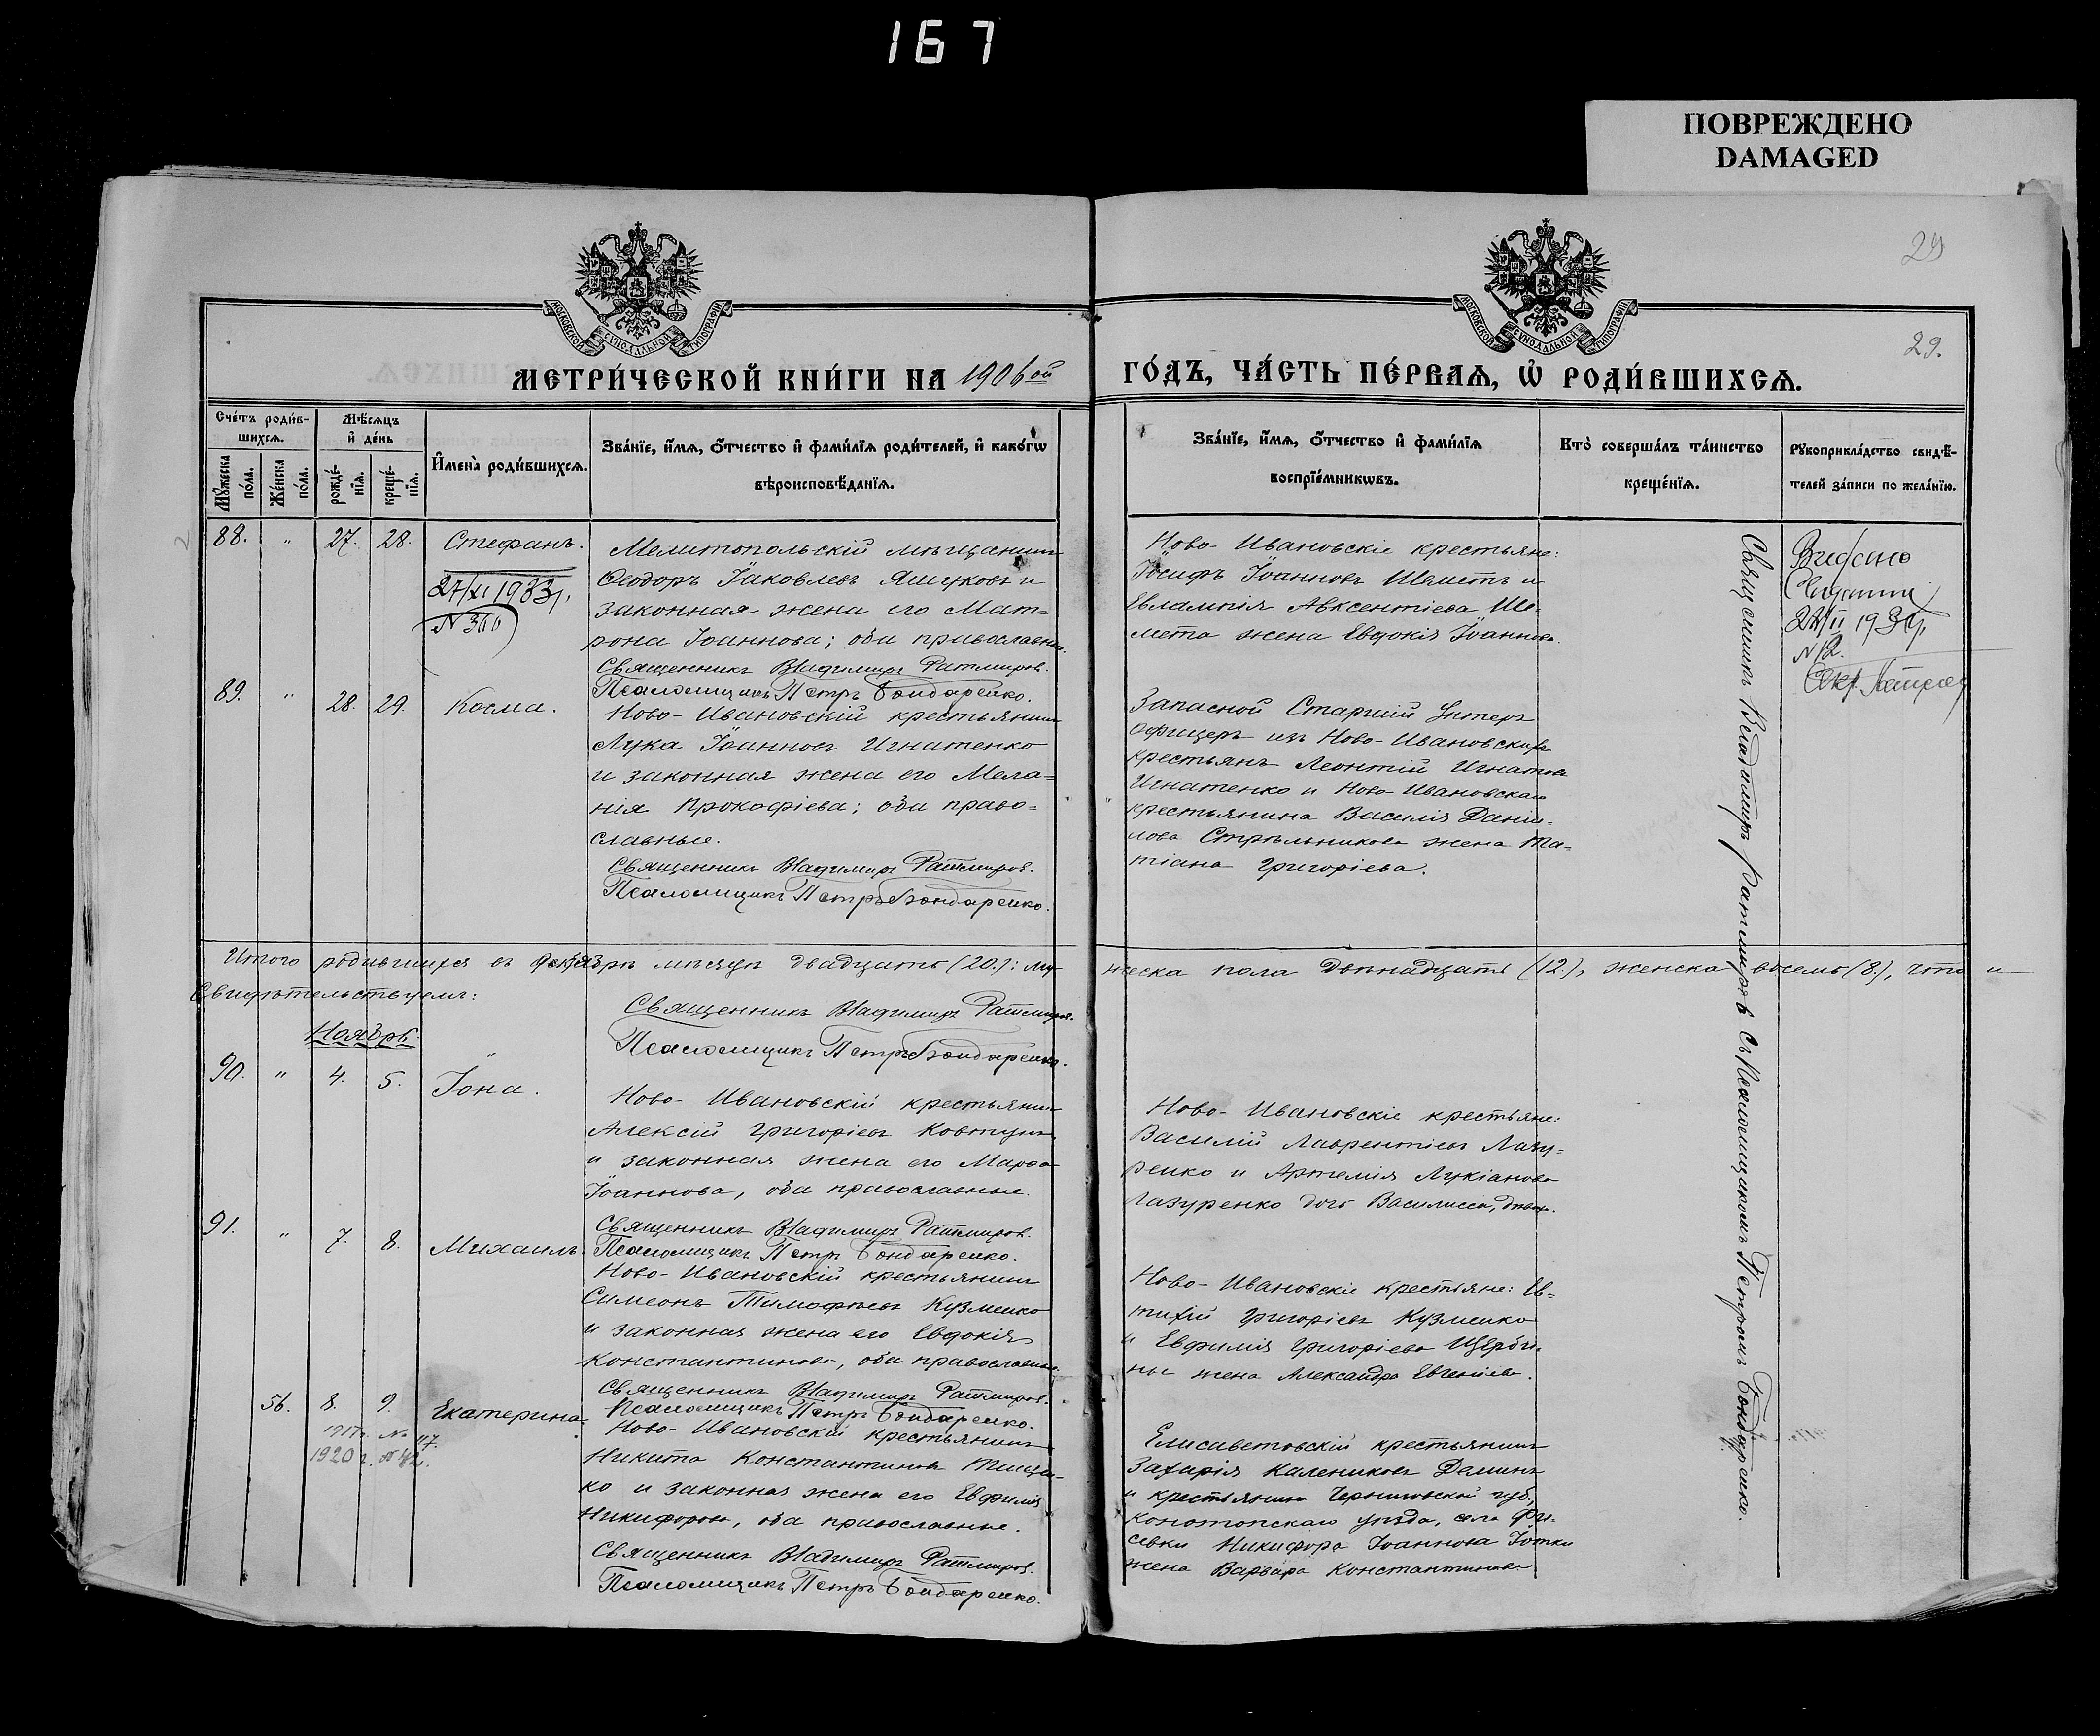 167
ПОВРЕЖДЕНО
DAMAGED
29
29.
МОСКОВСКОЙ СУНОДАЛЬНОЙ ТИПОГРАФІИ
МОСКОВСКОЙ СУНОДАЛЬНОЙ ТИПОГРАФІИ
МЕТРИ́ЧЕСКОЙ КНИ́ГИ НА 1906ой
ГО́ДЪ, ЧА́СТЬ ПЕ́РВАЯ, Ѡ РОДИ́ВШИХСѦ.
Сче́тъ роди́в-
шихсѧ.
Мѣ́сѧцъ
и҆ де́нь
Мꙋ́жеска по́ла.
Же́нска по́ла.
рожде́-
нїѧ.
креще́-
нїѧ.
И҆мена̀ роди́вшихсѧ.
Зва́нїе, и҆́мѧ, ѻ҆́тчество и҆ фами́лїѧ роди́телей, и҆ како́гѡ
вѣроисповѣ́данїѧ.
Зва́нїе, и҆́мѧ, ѻ҆́тчество и҆ фами́лїѧ
воспрїе́мникѡвъ.
Кто̀ соверша́лъ та́инство
креще́нїѧ.
Рꙋкоприкла́дство свидѣ́-
телей за́писи по жела́нїю.
88. " 27. 28. Стефанъ.
27/XI 1933г.
N 300
Мелитопольскій мѣщанинъ
Ѳеодоръ Іаковлевъ Яшуковъ и
законная жена его Мат=
рона Іоаннова; оба православные.
Священникъ Владимиръ Ратмировъ.
Псаломщикъ Петръ Бондаренко.
Ново-Ивановскіе крестьяне:
Іосифъ Іоанновъ Шеметъ и
Евлампія Авксентіева Ше-
мета жена Евдокія Іоаннова.
Видано
1934г.
N 12.
Священникъ Владимиръ Ратмировъ съ Псаломщикомъ Петромъ Бондаренко.
89. " 28. 29. Косма.
Ново-Ивановскій крестьянинъ
Лука Іоанновъ Игнатенко
и законная жена его Мела=
нія Прокофіева; оба право=
славные.
Священникъ Владимиръ Ратмировъ.
Псаломщикъ Петръ Бондаренко.
Запасной Старшій Унтеръ
офицеръ изъ Ново-Ивановскихъ
крестьянъ Леонтій Игнатовъ
Игнатенко и Ново-Ивановскаго
крестьянина Василія Даніи-
лова Стрѣльникова жена Та=
тіана Григоріева.
Итого родившихся въ Октябрѣ мѣсяцѣ двадцать (20.): му-
жеска пола двѣнадцать (12.), женска восемь (8.), что и
Свидѣтельствуемъ:
Священникъ Владимиръ Ратмировъ.
Псаломщикъ Петръ Бондаренко.
Ноябрь.
90. " 4. 5. Іона.
Ново-Ивановскій крестьянинъ
Алексій Григоріевъ Ковтунъ
и законная жена его Марѳа
Іоаннова, оба православные.
Священникъ Владимиръ Ратмировъ.
Псаломщикъ Петръ Бондаренко.
Ново-Ивановскіе крестьяне:
Василій Лаврентіевъ Лазу=
ренко и Артемія Лукіанова
Лазуренко дочь Василисса, дѣвица.
91. " 7. 8. Михаилъ.
Ново-Ивановскій крестьянинъ
Симеонъ Тимофѣевъ Кузменко
и законная жена его Евдокія
Константинова, оба православные.
Священникъ Владимиръ Ратмировъ.
Псаломщикъ Петръ Бондаренко.
Ново-Ивановскіе крестьяне: Ев=
тихій Григоріевъ Кузменко
и Евфимія Григоріева Щерби-
ны жена Александра Евгеніева.
56. 8. 9. Екатерина.
1917г. № 117.
1920 г. № 42.
Ново-Ивановскій крестьянинъ
Никита Константиновъ Тищен-
ко и законная жена его Евфимія
Никифорова, оба православные.
Священникъ Владимиръ Ратмировъ.
Псаломщикъ Петръ Бондаренко.
Елисаветовскій крестьянинъ
Захарія Калениковъ Деминъ
и крестьянина Черниговской губ.,
Конотопскаго уѣзда, села
Никифора Іоаннова
жена Варвара Константинова